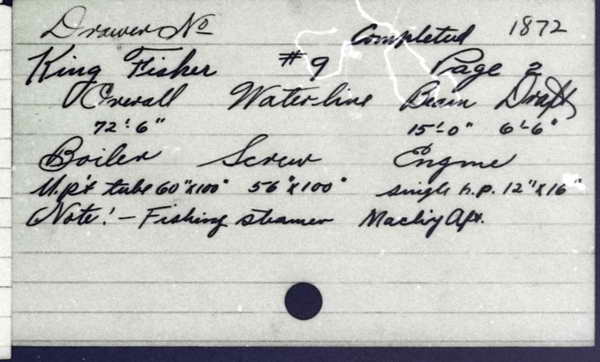 Drawer No Completed 1872
King Fisher #9 Page 2
Overall Water-line Beam Draft
72'-6" 15'-0" 6'-6"
Boiler Screw Engine
Up't tube 60"x100" 56"x100" single h.p. 12"x16"
Note:- Fishing steamer Machy Aft.